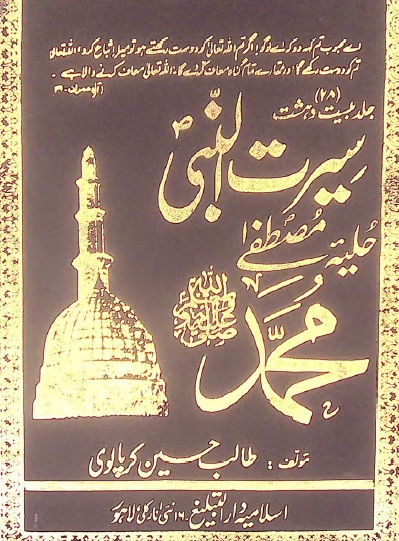 اے محبوب تم کہہ دو کہ اے لوگو! اگر تم اللہ تعالیٰ کو دوست رکھتے ہو تو میرا اتباع کرو، اللہ تعالیٰ
تم کو دوست رکھے گا اور تمھارے تمام گناہ معاف کر دے گا، اللہ تعالیٰ معاف کرنے والا ہے۔
(آل عمران۔۳۱)
جلد بیست و ہشت (۲۸)
سیرت النبیؐ
حلیۂ مصطفےٰ
محمد ﷺ
مؤلف: طالب حسین کرپالوی
اسلامیہ دارالتبلیغ۔ ۱۶ نئی انارکلی لاہور